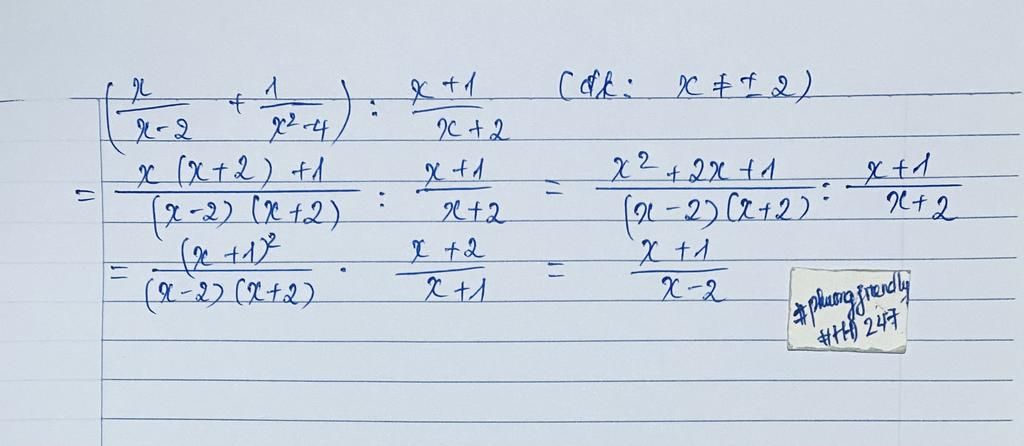 (x/(x-2) + 1/(x²-4)) : (x+1)/(x+2) (đk: x ≠ ± 2)
= (x(x+2)+1)/((x-2)(x+2)) : (x+1)/(x+2) = (x²+2x+1)/((x-2)(x+2)) : (x+1)/(x+2)
= (x+1)²/((x-2)(x+2)) . (x+2)/(x+1) = (x+1)/(x-2)
#phuongfriendly
#HĐ247